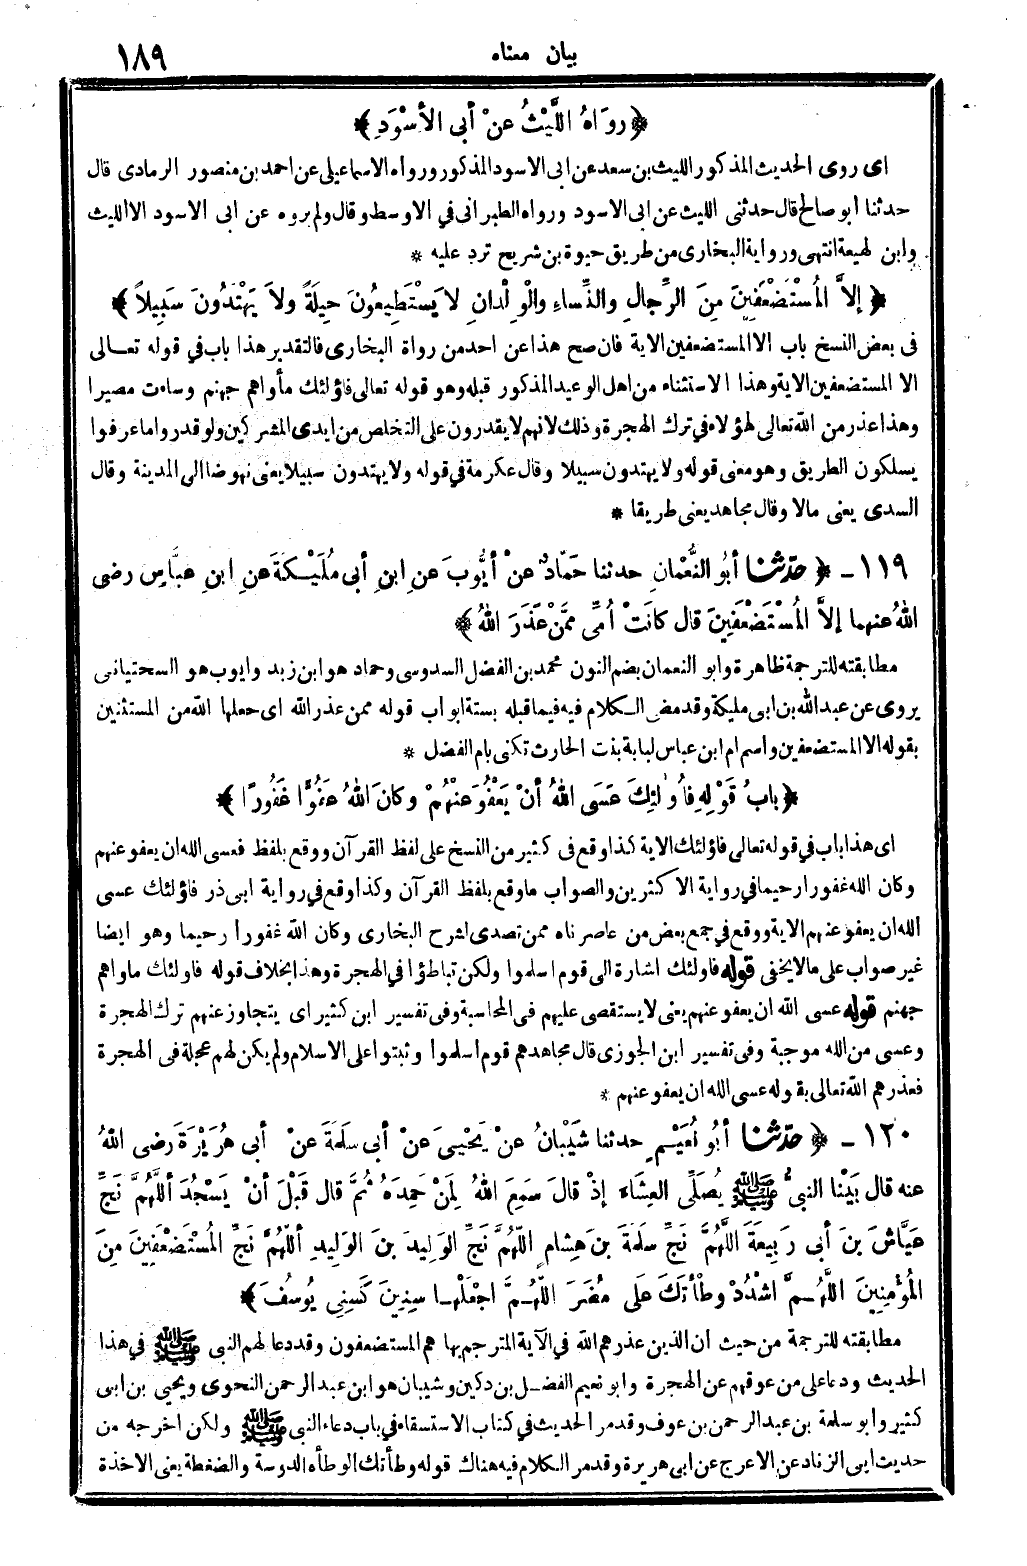 بيان معناه ١٨٩
﴿ رَوَاهُ اللَّيْثُ عنْ أبى الأسْوَدِ ﴾
اى روى الحديث المذكور الليث بن سعد عن ابى الاسود المذكور ورواه الاسماعيلى عن احمد بن منصور الرمادى قال
حدثنا ابو صالح قال حدثنى الليث عن ابى الاسود ورواه الطبرانى في الاوسط وقال ولم يروه عن ابى الاسود الا الليث
وابن لهيعة انتهى ورواية البخارى من طريق حيوة بن شريح ترد عليه *
﴿ إلاَّ المُسْتَضْعَفِينَ مِنَ الرِّجالِ والنِّساءِ والْوِلْدانِ لا يَسْتَطِيعُونَ حِيلَةً ولاَ يَهْتَدُونَ سَبِيلاً ﴾
فى بعض النسخ باب الا المستضعفين الاية فان صح هذا عن احد من رواة البخارى فالتقدير هذا باب في قوله تعالى
الا المستضعفين الاية وهذا الاستثناء من اهل الوعيد المذكور قبله وهو قوله تعالى فاؤلئك مأواهم جهنم وساءت مصيرا
وهذا عذر من الله تعالى لهؤلاء في ترك الهجرة وذلك لانهم لا يقدرون على التخلص من ايدى المشركين ولو قدروا ما عرفوا
يسلكون الطريق وهو معنى قوله ولا يهتدون سبيلا وقال عكرمة في قوله ولا يهتدون سبيلا يعنى نهوضا الى المدينة وقال
السدى يعنى مالا وقال مجاهد يعنى طريقا *
١١٩ ـ ﴿ حدّثنا أبُو النُّعْمانِ حدثنا حَمّادٌ عنْ أيُّوبَ عنِ ابنِ أبى مُلَيْكَةَ عنِ ابنِ عبَّاسٍ رضى
اللهُ عنهما إلاَّ المُسْتَضْعَفِينَ قال كانَتْ أُمِّى مِمَّنْ عَذَرَ اللهُ ﴾
مطابقته للترجمة ظاهرة وابو النعمان بضم النون محمد بن الفضل السدوسى وحماد هو ابن زيد وايوب هو السختيانى
يروى عن عبد الله بن ابى مليكة وقد مضى الكلام فيه فيما قبله بستة ابواب قوله ممن عذر الله اى جعلها الله من المستثنين
بقوله الا المستضعفين واسم ام ابن عباس لبابة بنت الحارث تكنى بام الفضل *
﴿ بابُ قَوْلِهِ فأُولٰئِكَ عَسَى اللهُ أنْ يَعْفُوَ عَنْهُمْ وكانَ اللهُ عَفُوًّا غَفُورًا ﴾
اى هذا باب في قوله تعالى فاؤلئك الاية كذا وقع فى كثير من النسخ على لفظ القرآن ووقع بلفظ فعسى الله ان يعفو عنهم
وكان الله غفورا رحيما في رواية الاكثرين والصواب ما وقع بلفظ القرآن وكذا وقع في رواية ابى ذر فاؤلئك عسى
الله ان يعفو عنهم الاية ووقع في جمع بعض من عاصرناه ممن تصدى لشرح البخارى وكان الله غفورا رحيما وهو ايضا
غير صواب على ما لا يخفى قوله فاولئك اشارة الى قوم اسلموا ولكن تباطؤا في الهجرة وهذا بخلاف قوله فاولئك ماواهم
جهنم قوله عسى الله ان يعفو عنهم يعنى لا يستقصى عليهم فى المحاسبة وفى تفسير ابن كثير اى يتجاوز عنهم ترك الهجرة
وعسى من الله موجبة وفى تفسير ابن الجوزى قال مجاهد هم قوم اسلموا وثبتوا على الاسلام ولم يكن لهم عجلة فى الهجرة
فعذرهم الله تعالى بقوله عسى الله ان يعفو عنهم *
١٢٠ ـ ﴿ حدّثنا أبُو نُعَيْمٍ حدثنا شَيْبَانُ عنْ يَحْيىَ عنْ أبى سلَمَةَ عنْ أبى هُرَيْرَةَ رضى اللهُ
عنه قال بَيْنا النبىُّ ﷺ يُصَلِّى العِشَاءَ إذْ قالَ سَمِعَ اللهُ لِمَنْ حَمِدَهُ ثُمَّ قال قَبْلَ أنْ يَسْجُدَ أللَّهُمَّ نَجِّ
عَيَّاشَ بنَ أبى رَبِيعَةَ اللَّهُمَّ نَجِّ سلَمَةَ بنَ هِشامٍ اللّهُمَّ نَجِّ الوَلِيدَ بنَ الوَلِيدِ أللّهُمَّ نَجِّ المُسْتَضْعَفِينَ مِنَ
المُؤْمِنِينَ اللَّهُمَّ اشْدُدْ وطْأتَكَ عَلَى مُضَرَ اللَّهُمَّ اجْعَلْها سِنِينَ كَسِنِى يُوسُفَ ﴾
مطابقته للترجمة من حيث ان الذين عذرهم الله في الآية المترجم بها هم المستضعفون وقد دعا لهم النبى ﷺ في هذا
الحديث ودعا على من عوقهم عن الهجرة وابو نعيم الفضل بن دكين وشيبان هو ابن عبد الرحمن النحوى ويحيى بن ابى
كثير وابو سلمة بن عبد الرحمن بن عوف وقد مر الحديث في كتاب الاستسقاء في باب دعاء النبى ﷺ ولكن اخرجه من
حديث ابى الزناد عن الاعرج عن ابى هريرة وقد مر الكلام فيه هناك قوله وطأتك الوطأة الدوسة والضغطة يعنى الاخذة